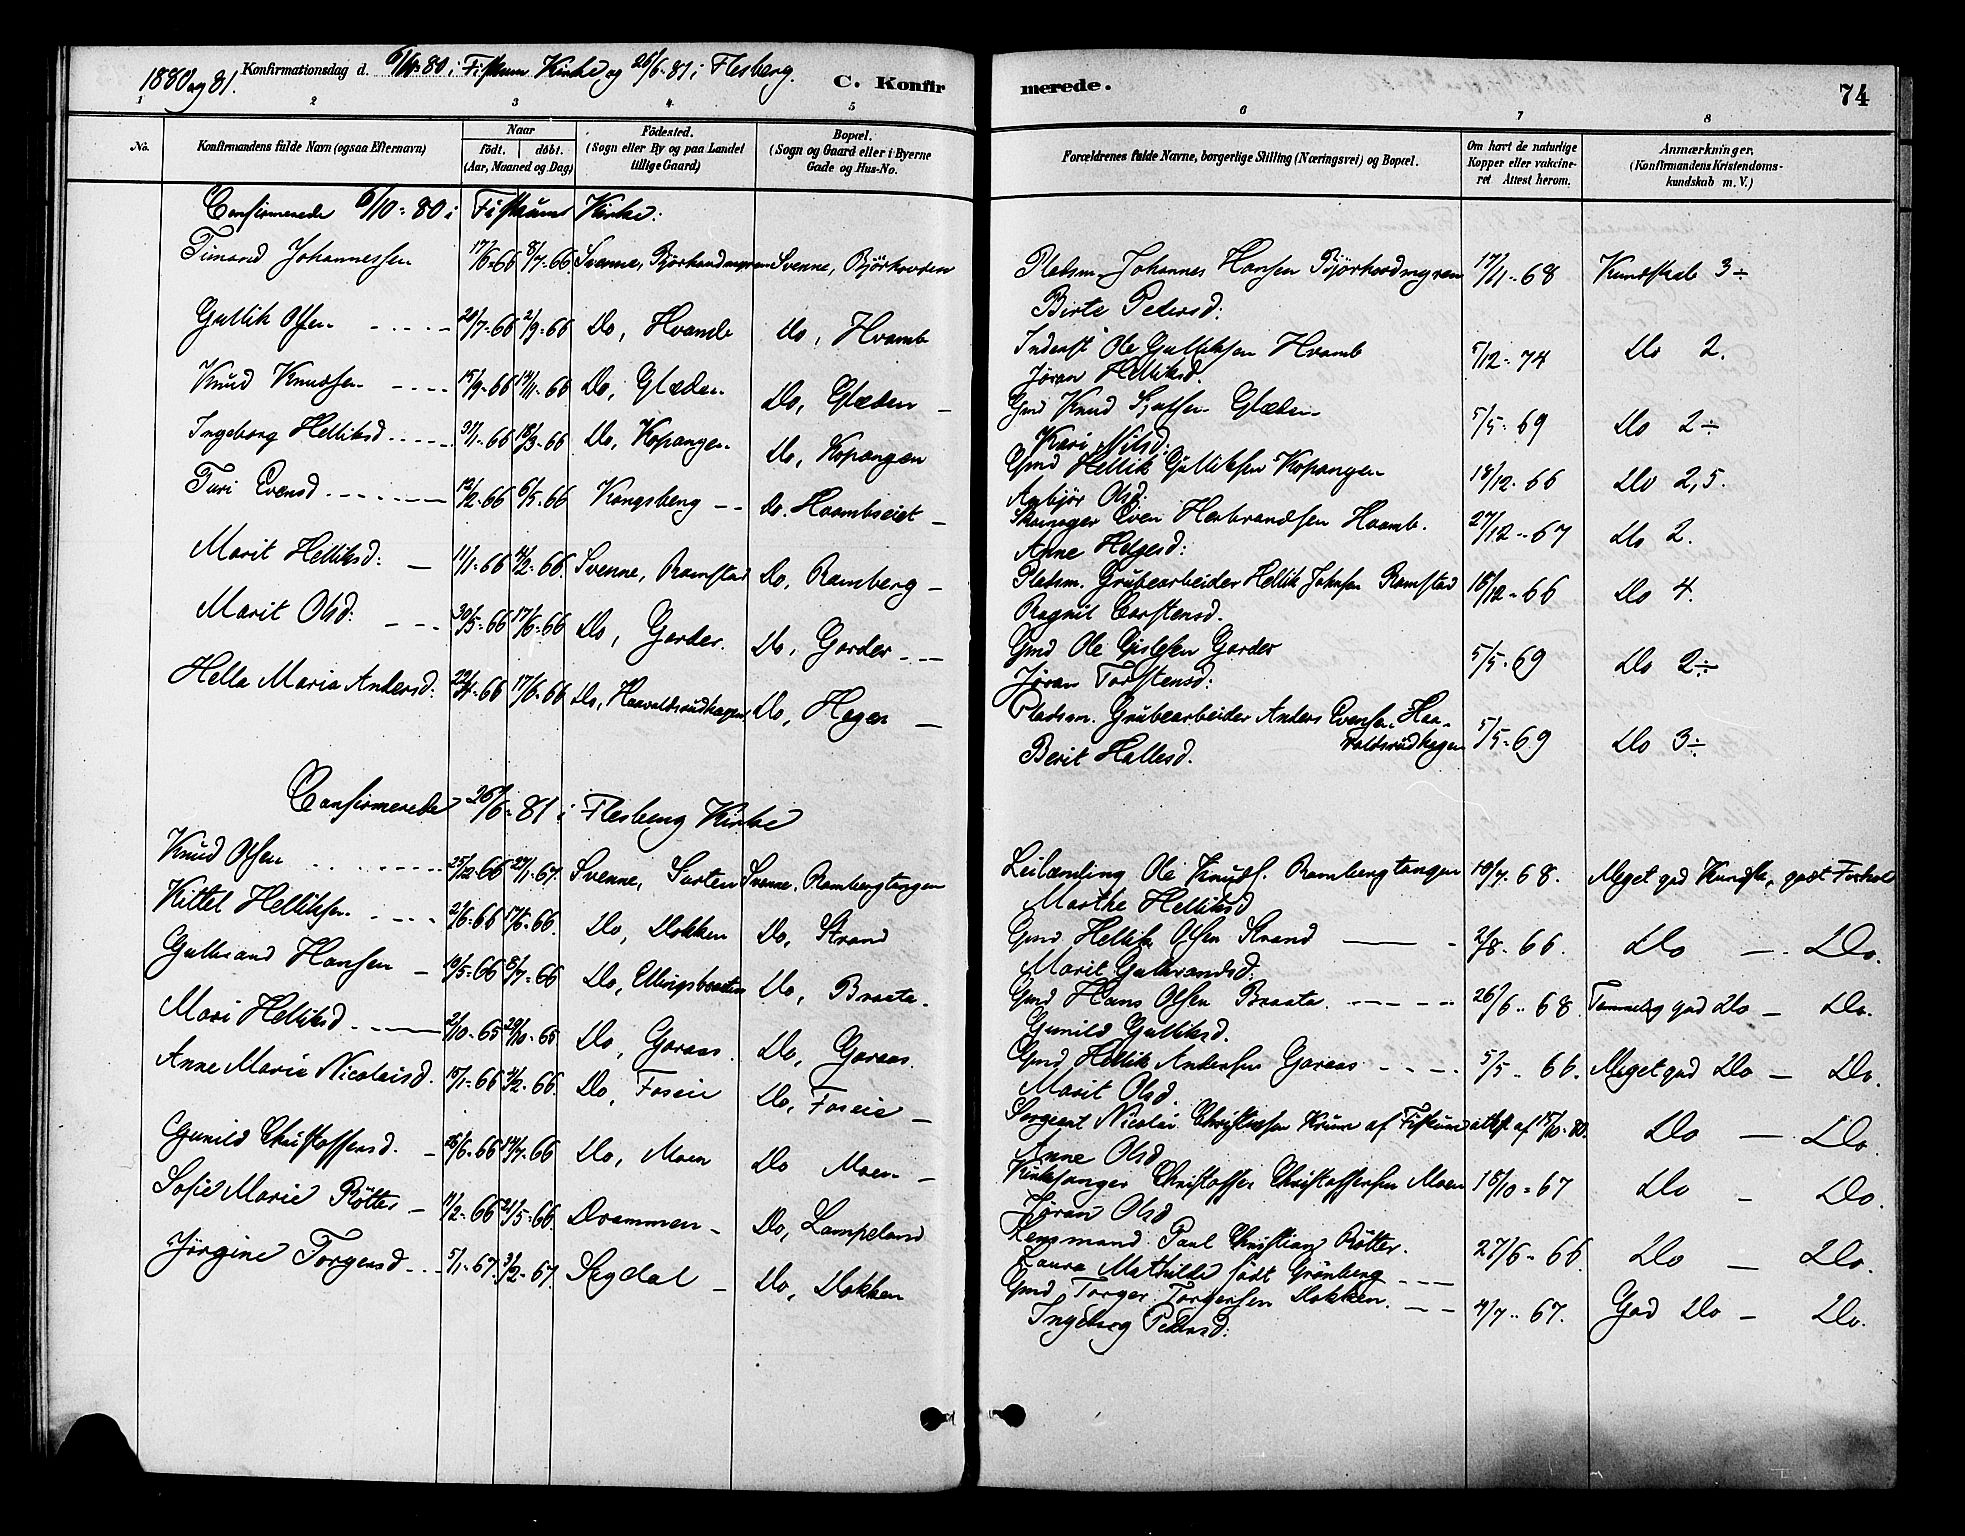 1880 og 81. Konfirmationsdag d. 6/10-80 i Fiskum Kirke og 26/6-81 i Flesberg. C. Konfirmerede. 74
1 2 3 4 5 6 7 8
No. Konfirmandens fulde Navn (ogsaa Efternavn) Naar födt. döbt. (Aar, Maaned og Dag) Födested. (Sogn eller By og paa Landet tillige Gaard) Bopæl. (Sogn og Gaard eller i Byerne Gade og Hus-No. Forældrenes fulde Navne, borgerlige Stilling (Næringsvei) og Bopæl. Om havt de naturlige Kopper eller vakcineret Attest herom. Anmærkninger. (Konfirmandens Kristendomskundskab m. V.)
Confirmerede 6/10-80 i Fiskums Kirke:
Johannessen 17/6-66 8/7-66 Svenne, Svenne, Pladsm. Johannes Hansen 17/11-68 Kundskab 3÷
Birte Pedersd:
Gullik Olsen 2/9-66 Do, Hvamb Do, Hvamb Inderst Ole Gulliksen Hvamb 5/12-74 Do 2.
Jøran Helliksd.
Knud Knudsen 15/9-66 Do, Glæden Do, Glæden Gmd Knud Glæden 5/5-69 Do 2÷
Kari Nilsd.
Ingeborg Helliksd 18/3-66 Do, Kopangen Do, Kopangen Gmd Hellik Gulliksen Kopangen 18/12-66 Do 2,5.
Anbjør Olsd.
Turi Evensd 12/2-66 6/5-66 Kongsberg Do. Hvambseiet Even Herbrandsen Hvamb. 27/12-67 Do 2.
Anne Helgesd:
Marit Helliksd: 11/1-66 4/2-66. Svenne, Ramstad Do, Ramberg Pladsm. Grubearbeider Hellik Johnsen Ramstad 18/12-66 Do 4.
Ragnil Carstensd.
Marit Olsd: 30/5-66 17/6-66 Do, Garder. Do, Garder Gmd Ole Gislesen Garder 5/5-69 Do 2÷
Jøran Torstensd:
Hella Maria Andersd: 22/4-66 17/6-66 Do, Haavaldsrudhagen Do, Hagen Pladsm. Grubearbeider Anders Evensen Haavaldsrudhagen 5/5-69 Do 3÷
Berit Hallesd.
Confirmerede 26/6-81 i Flesberg Kirke
Knud Olsen 25/12-66 27/1-67. Svenne, Svenne, Rambergtangen Leilænding Ole Knuds. Rambergtangen 10/7-68. Meget god Kundsk, godt Forhold
Marthe Helliksd
Kittel Helliksen 2/6-66 17/6-66. Do, Dokken Do, Strand Gmd Hellik Olsen Strand 2/8-66. Do — Do.
Marit Gulbrandsd:
Gulbrand Hansen 10/5-66 8/7-66 Do, Do, Braata. Gmd Hans Olsen Braata. 26/6-68. Temmelig god Do — Do.
Gunild Gulliksd.
Mari Helliksd 2/10-65 29/10-65 Do, Garaas. Do, Garaas. Gmd Hellik Andersen Garaas 5/5-66. Meget god Do — Do.
Marit Olsd.
Anne Marie Nicolaisd. 15/1-66 Do, Foseie Do, Foseie Sergeant Nicolai Christiansen af Fiskum attest af 15/10-80. Do — Do
Anne Olsd
Gunild Christoffersd. 14/7-66 Do, Moen Do Moen Kirkesanger Christoffer Christoffersen Moen 18/10-67 Do — Do.
Jøran Olsd
Sofie Marie Rötter 11/2-66 21/5-66. Drammen Do, Lampeland Lensmand Paul Christian Rötter. 27/6-66. Do — Do.
Laura Mathilde född Grönberg
Jørgine Torgersd 5/1-67. 3/2-67. Sigdal Do, Dokken Gmd Torger Torgersen Dokken. 4/7-67. God Do — Do.
Ingeborg Pedersd: